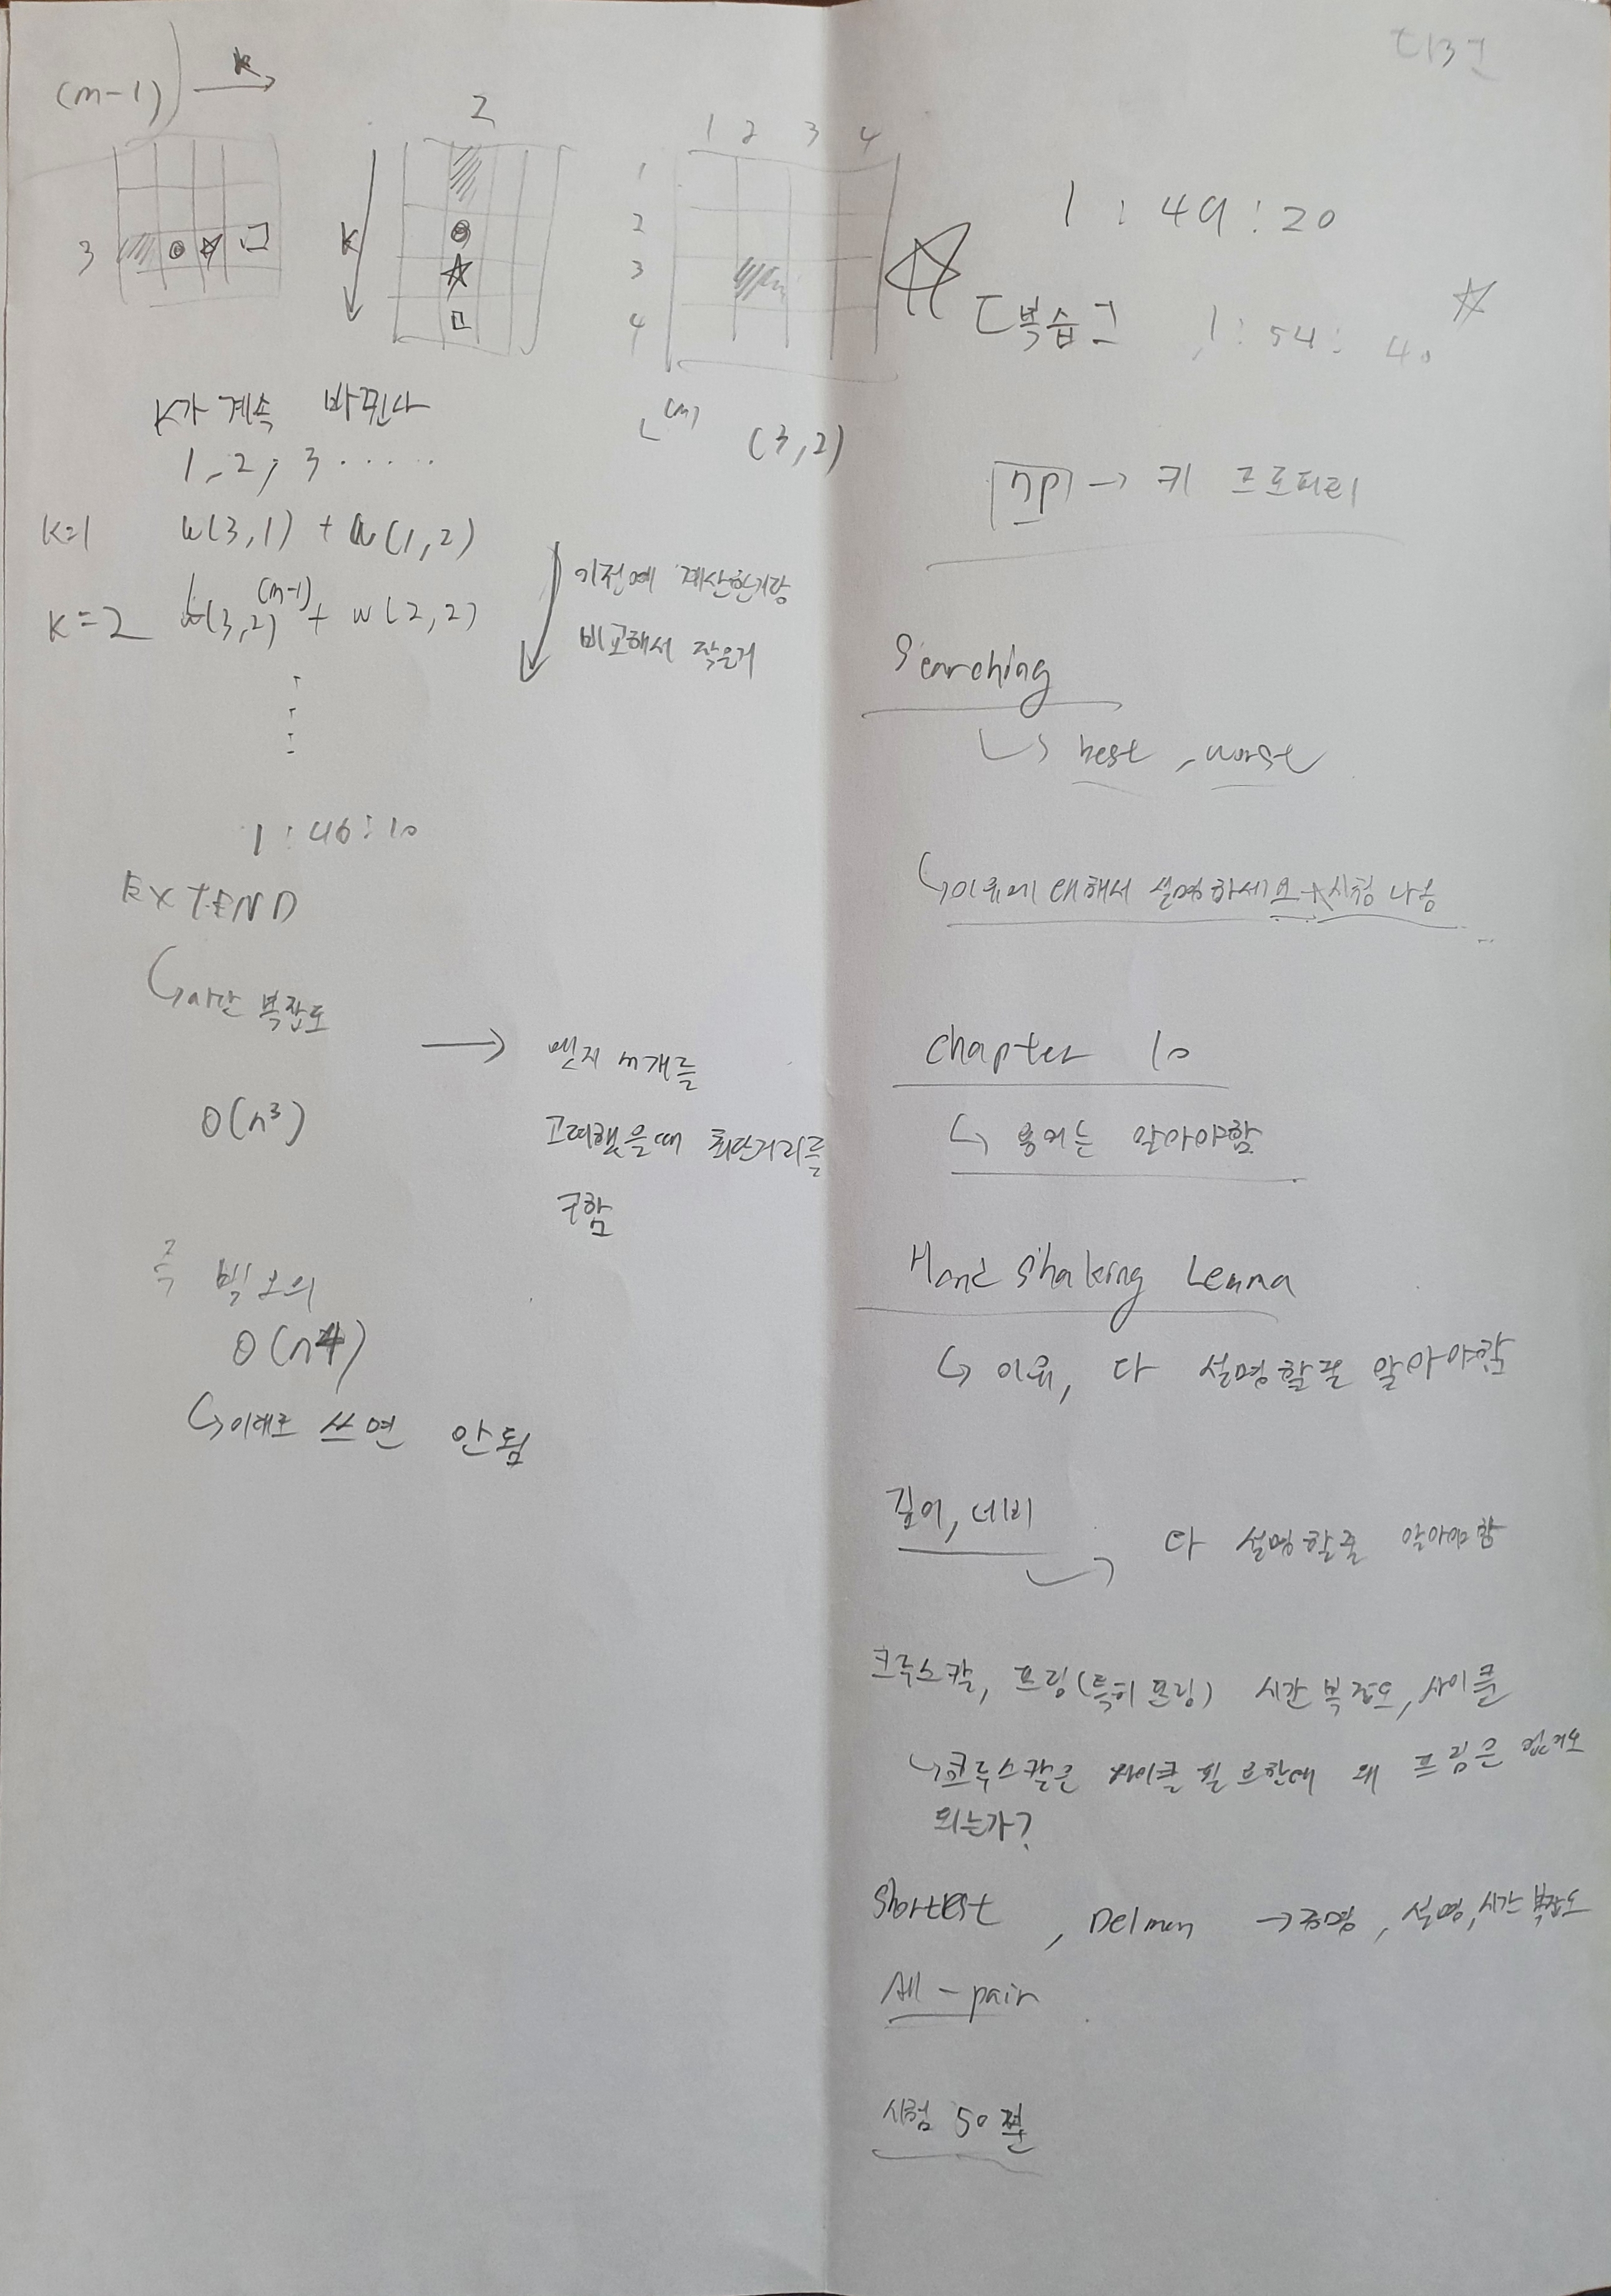 (m-1) k
2
1 2 3 4
3
K
1
2
3
4
K가 계속 바뀐다
1, 2, 3 ......
(m)
(3,2)
K=1 w(3,1) + w(1,2)
K=2 (3,2)(m-1) + w(2,2)
이전에 계산한거랑
비교해서 작은거
1:46:10
EXTEND
시간 복잡도
O(n³)
엣지 m개를
고려했을때 최단거리를
구함
즉 빅오의
O(n4)
이대로 쓰면 안됨
1:49:20
[복습] 1:54:40
np → 키 프로퍼티
Searching
best, worst
이유에 대해서 설명하세요 시험 나옴
chapter 10
용어는 알아야함
Hand Shaking Lemma
이유, 다 설명할줄 알아야함
깊이, 너비 다 설명할줄 알아야함
크루스칼, 프림(특히 프림) 시간 복잡도, 사이클
크루스칼은 사이클 필요한데 왜 프림은 없거도
되는가?
Shortest, Delmon → 증명, 설명, 시간 복잡도
All - pair
시험 50분